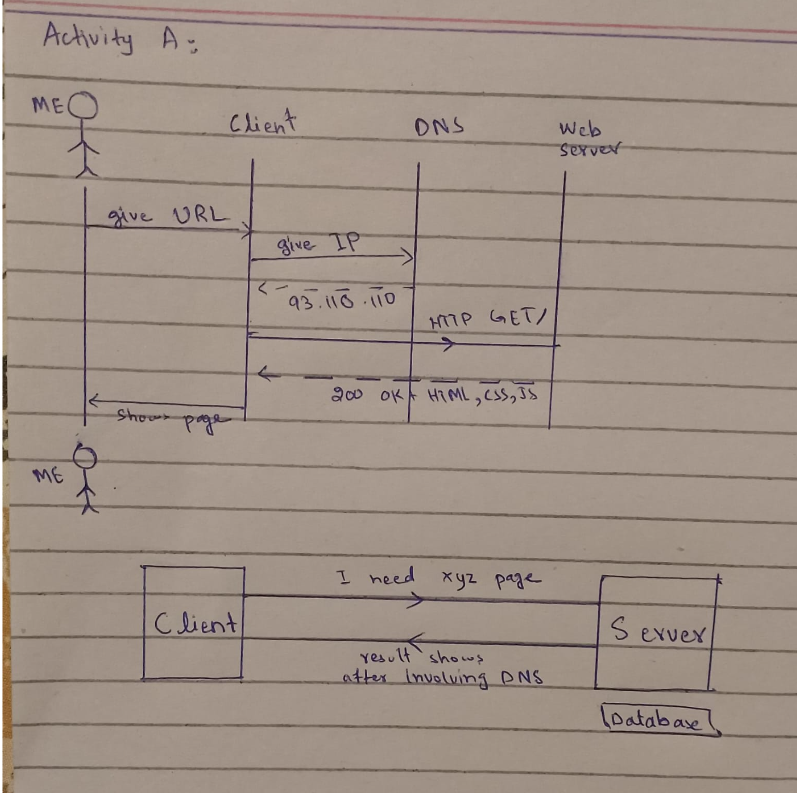 Activity A:
ME
Client
DNS
Web
server
give URL
give IP
93.110.110
HTTP GET/
200 OK + HTML, CSS, JS
Shows page
ME
I need xyz page
Client
Server
result shows
after Involving DNS
Database